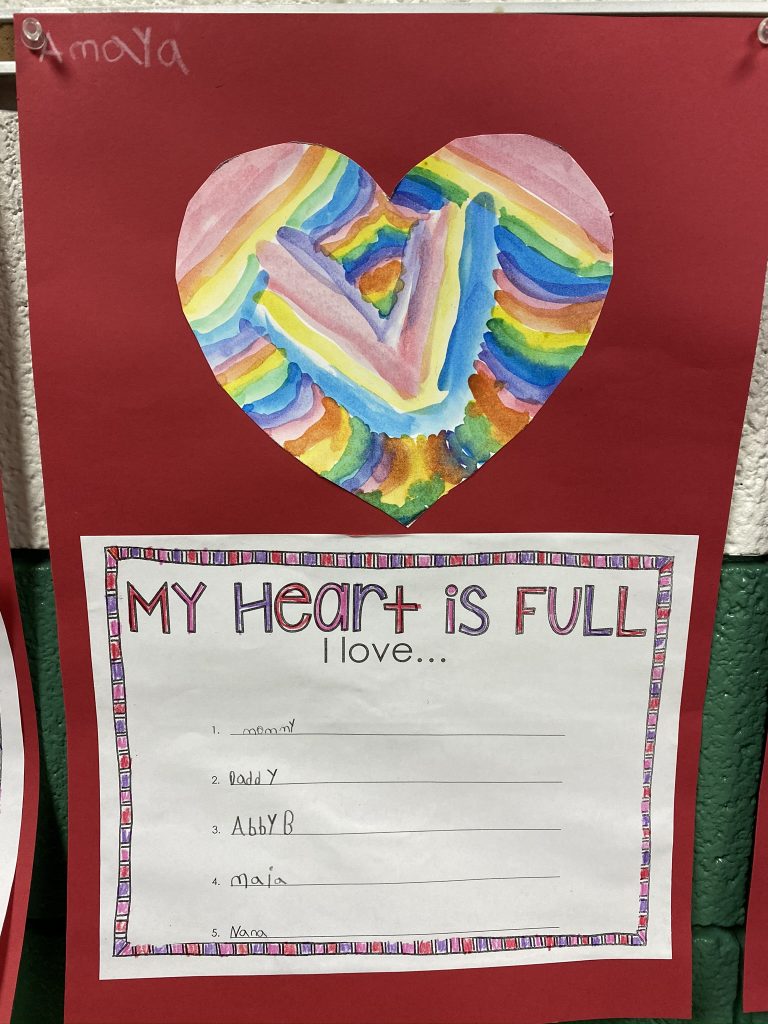 AmaYa
MY Heart is FULL
I love...
1. mommY
2. DaddY
3. AbbY B
4. maia
5. Nana